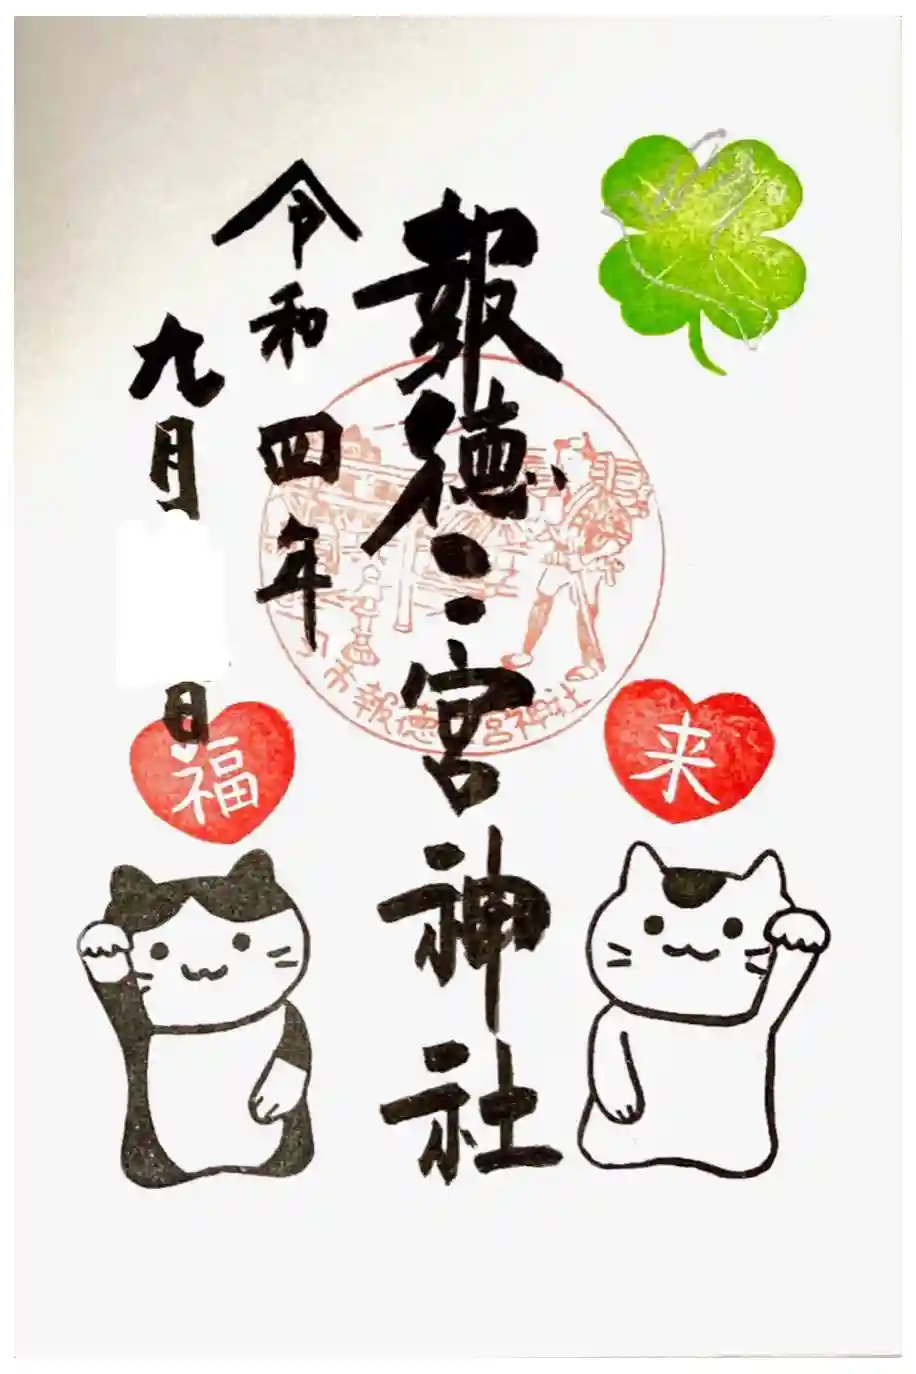 報徳二宮神社
令和四年
九月 日
来
福
市報徳 宮神社